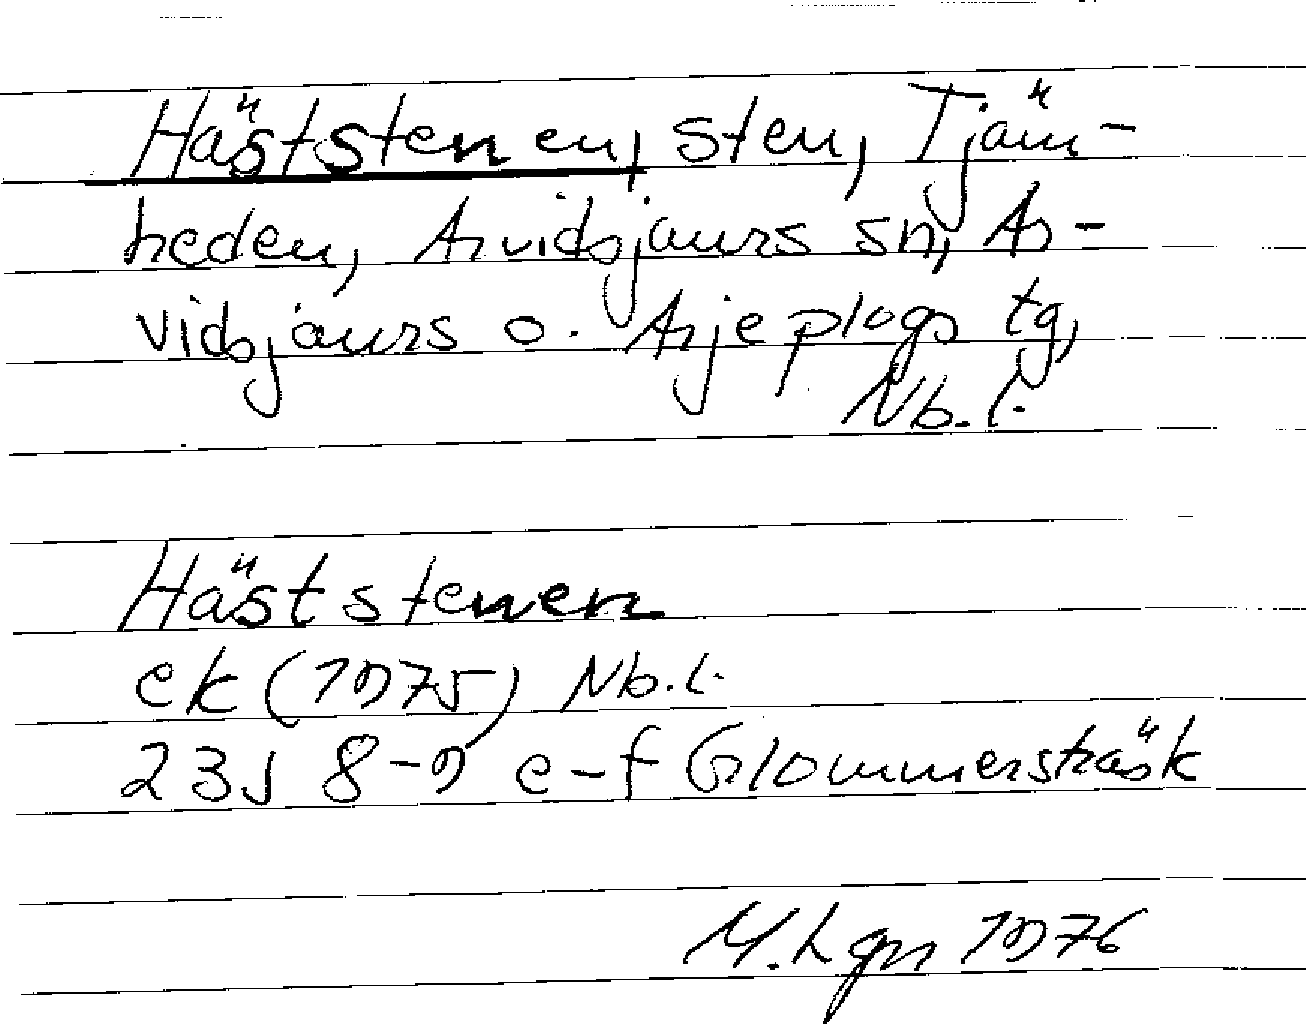 Häststenen, sten, Tjäm-
heden, Arvidsjaurs sn, Ar-
vidsjaurs o. Arjeplogs tg,
Nb. l.
Häststenen
ek (1975) Nb. l.
23J 8-9 e-f Glommersträsk
M. Lgn 1976